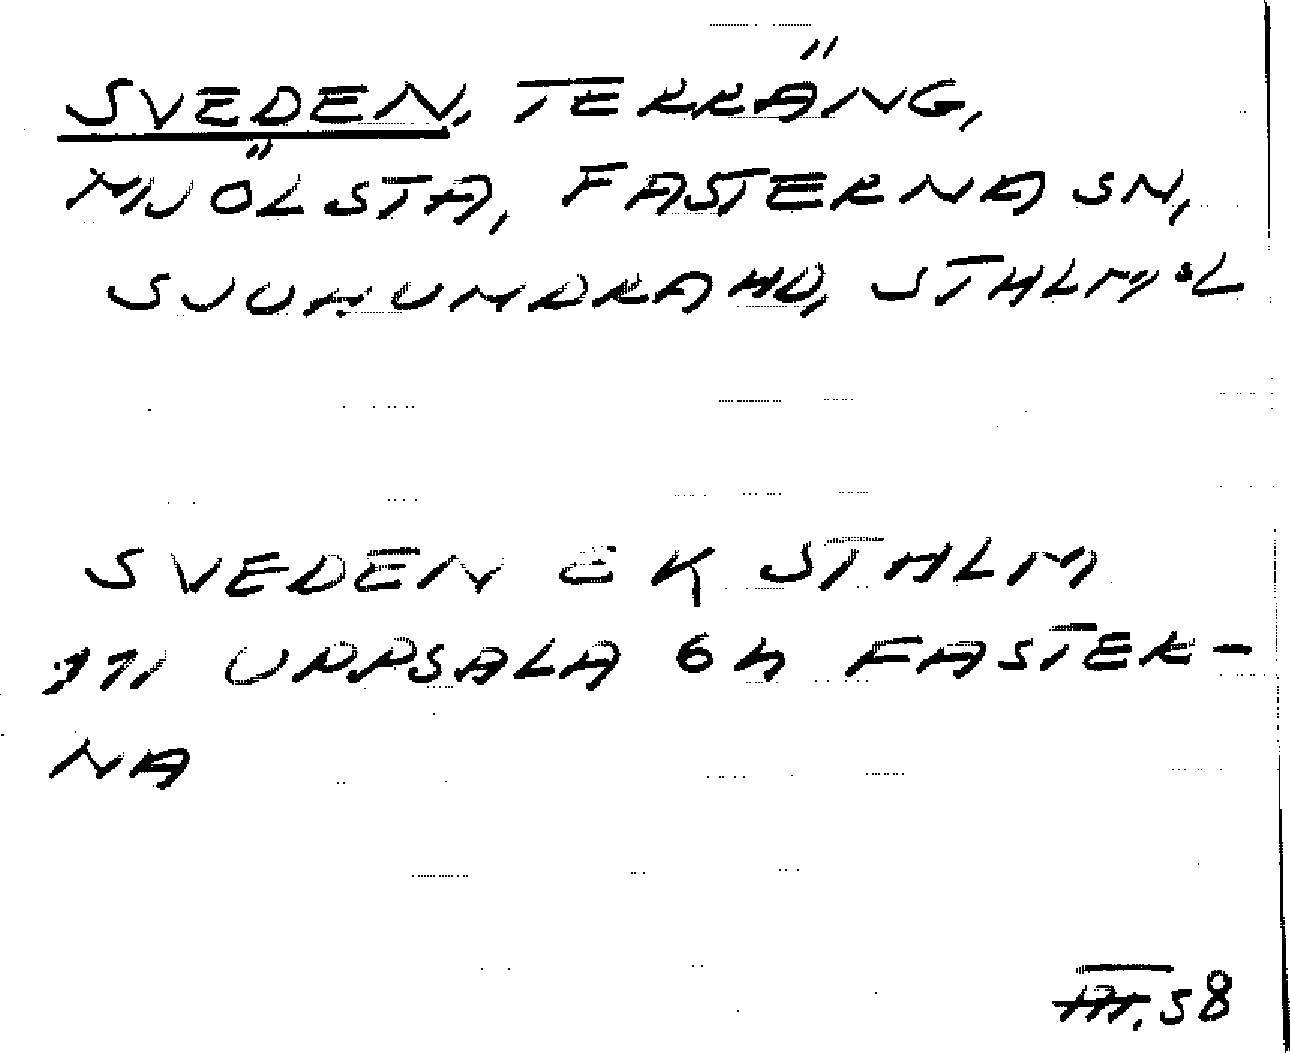 SVEDEN, TERRÄNG,
MJÖLSTA, FASTERNA SN,
SJUHUNDRA HD, STHLM:S L
SVEDEN EK STHLM
111 UPPSALA 6h FASTER-
NA
58